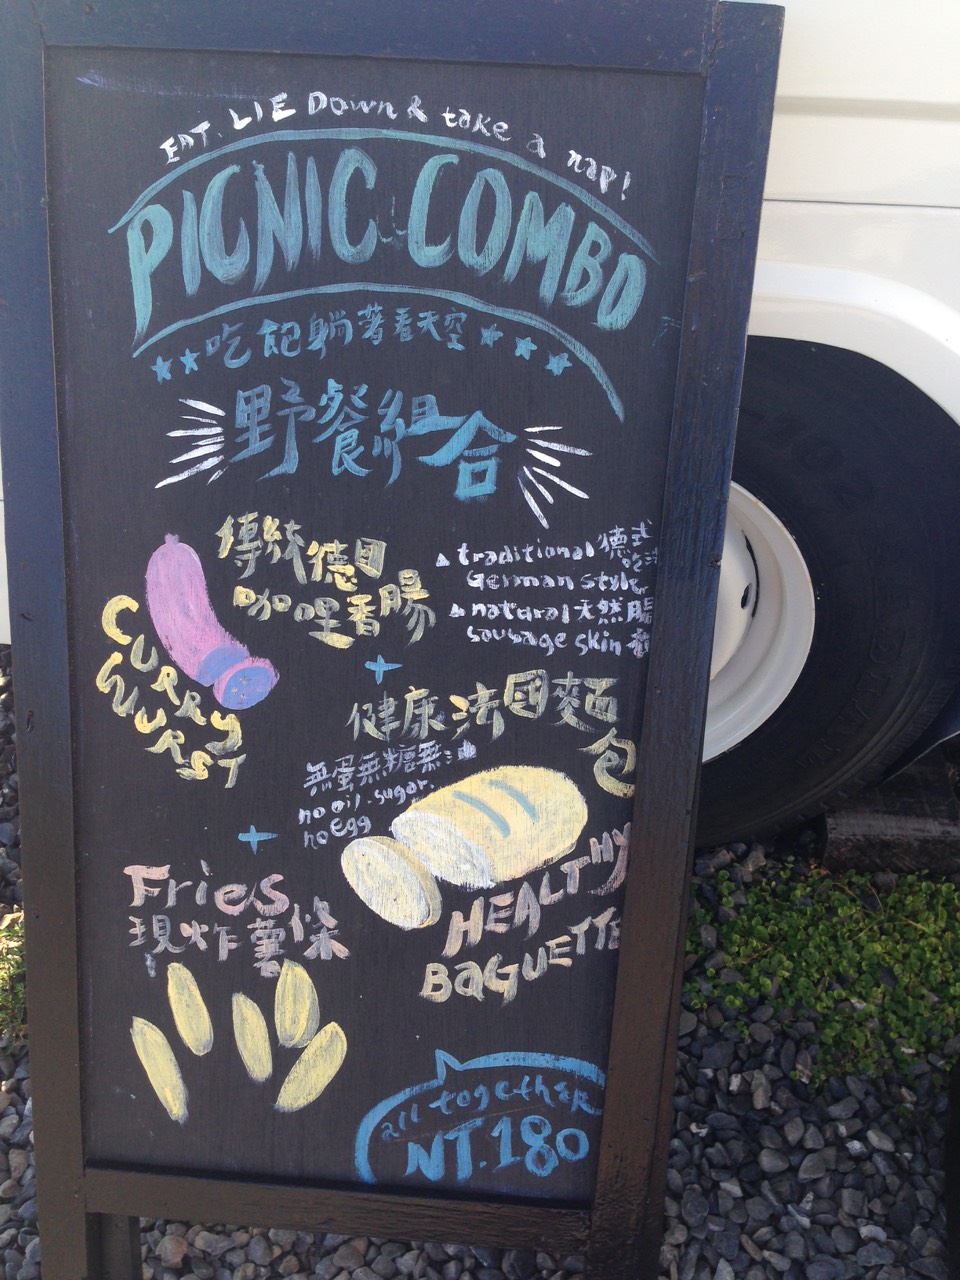 EAT. LIE Down & take a nap!
PICNIC COMBO
吃飽躺著看天空
野餐組合
傳統德國
咖哩香腸
CURRY
WURST
traditional 德式
German style 吃法
natural 天然腸
sausage skin
健康法國麵
包
無蛋無糖無油
no oil.sugar.
no egg
HEALTHY
BAGUETTE
Fries
現炸薯條
all together
NT.180